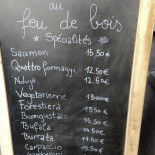 au
feu de bois
Spécialités
Saumon 15.50€
Quattro formaggi 12.50€
Nduja 12.50€
Vegetarienne
Forestiera
Buongustaio
Bufala 14.50€
Burrata
Carpaccio